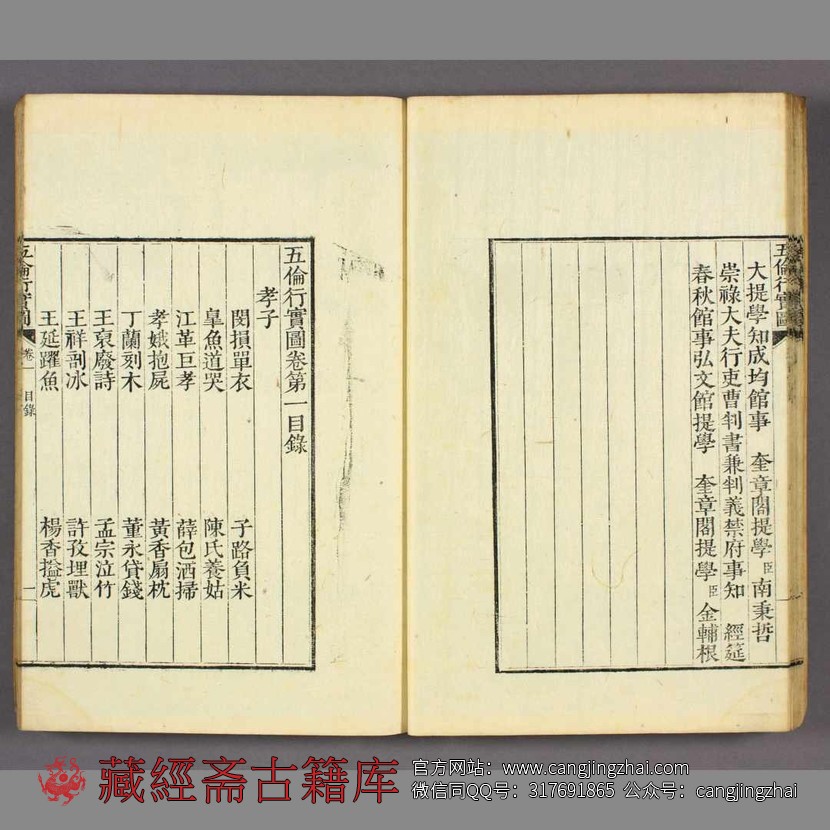 五倫行實圖
大提學知成均館事　奎章閣提學臣南秉哲
崇祿大夫行吏曹判書兼判義禁府事知　經筵
春秋館事弘文館提學　奎章閣提學臣金輔根
五倫行實圖卷第一目錄
孝子
閔損單衣　子路負米
皐魚道哭　陳氏養姑
江革巨孝　薛包洒掃
孝娥抱屍　黃香扇枕
丁蘭刻木　董永貸錢
王裒廢詩　孟宗泣竹
王祥剖冰　許孜埋獸
王延躍魚　楊香搤虎
五倫行實圖　卷一　目錄　一
藏經斋古籍库
官方网站：www.cangjingzhai.com
微信同QQ号：317691865 公众号：cangjingzhai